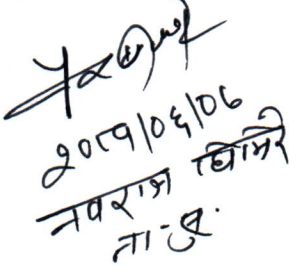 २०८१/०६/०८
नवराज घिमिरे
ना-सु.